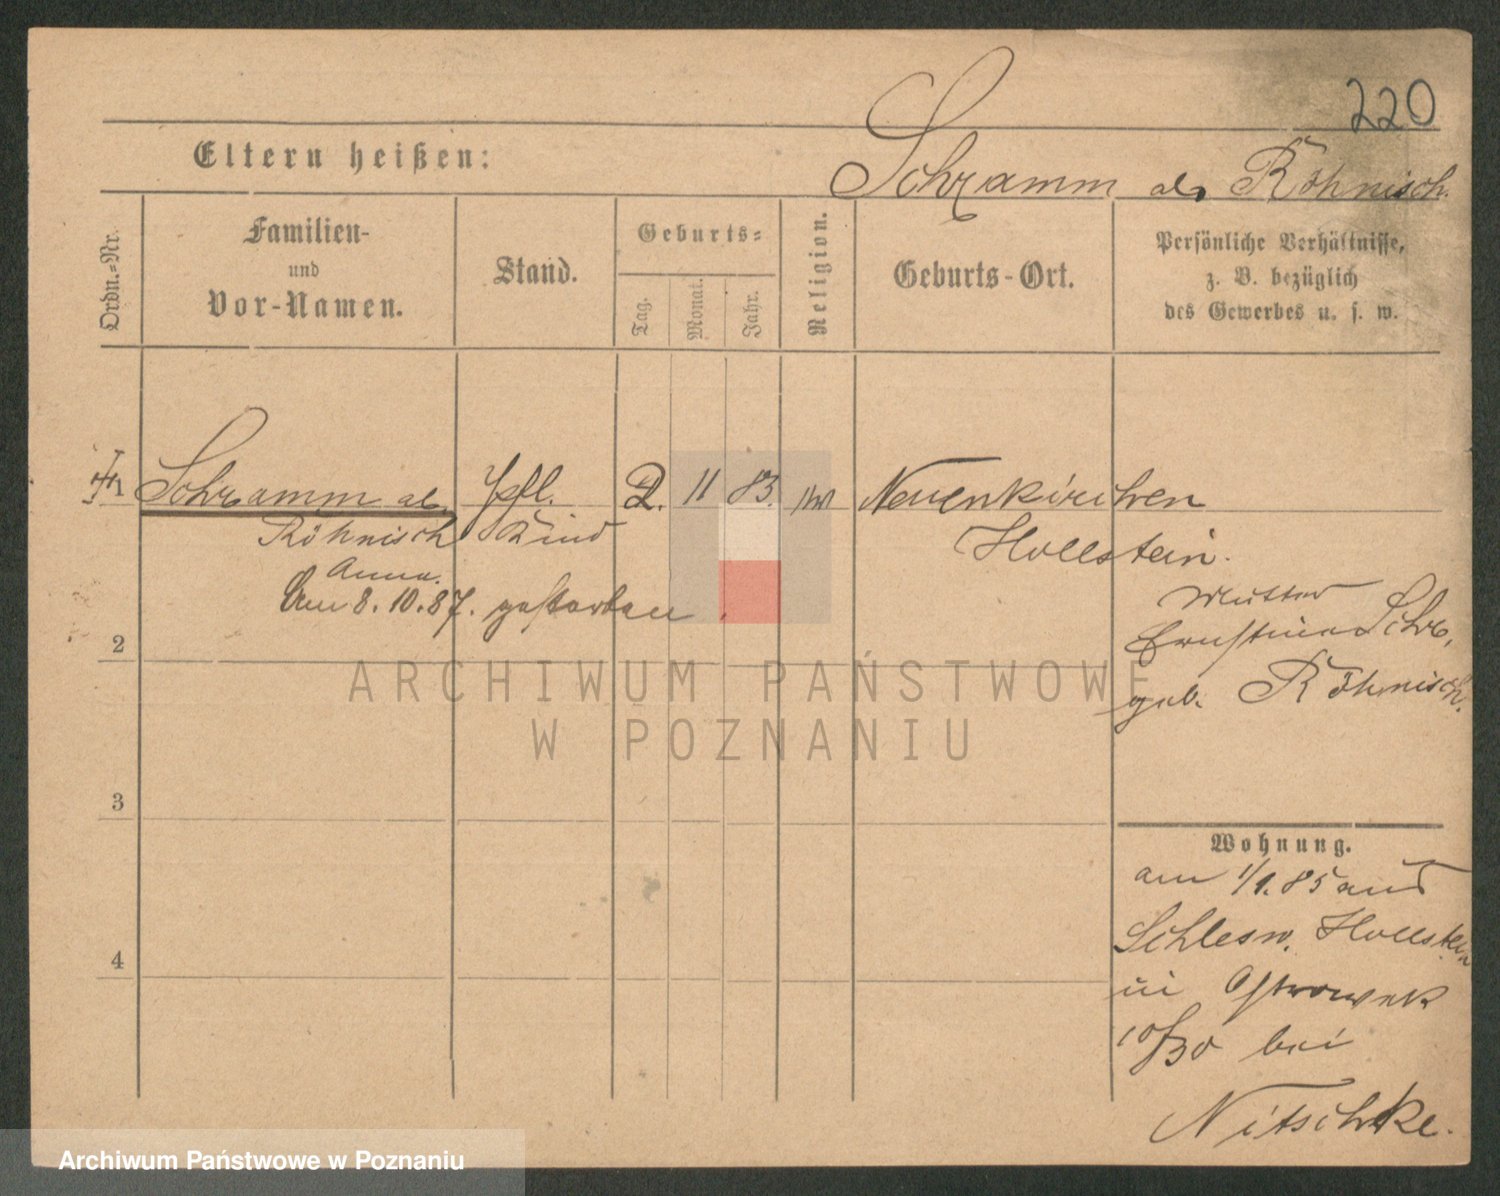 220
Eltern heißen:
Schramm als Röhnisch.
Ordn.=Nr.
Familien-
und
Vor-Namen.
Stand.
Geburts=
Tag.
Monat.
Jahr.
Religion.
Geburts-Ort.
Persönliche Verhältnisse,
z. B. bezüglich
des Gewerbes u. s. w.
1 Schramm als 2. 11 83. Neuenkirchen
Röhnisch Kind Hollstein.
Anna.
Am 8.10.87. gestorben.
Mutter
Ernstine Schr,
geb. Röhnisch.
2
3
4
Wohnung.
am 1/1.85 aus
Schlesw. Hollstein
in Ostrowek
10/30 bei
Nitschke.
ARCHIWUM PAŃSTWOWE
W POZNANIU
Archiwum Państwowe w Poznaniu